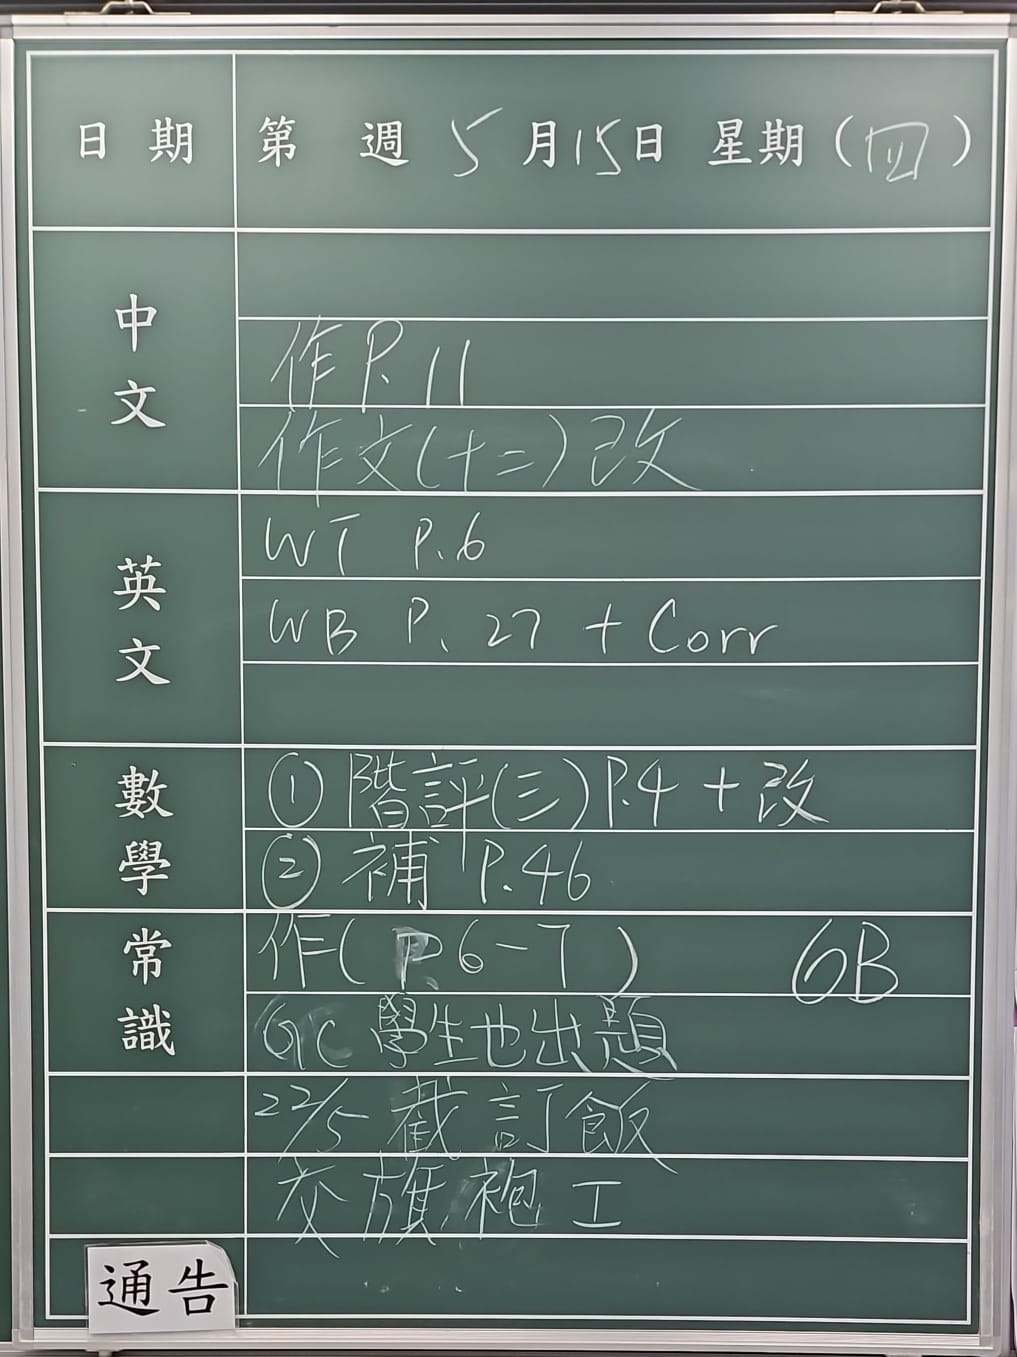 日期 第 週 5月15日 星期(四)
中文
作P.11
作文(十二)改
英文
WT P.6
WB P.27 + Corr
數學
① 階評(三)P.4 + 改
② 補 P.46
常識
作(P.6-7) 6B
GC 學生也出題
22/5 截訂飯
交旗袍工
通告